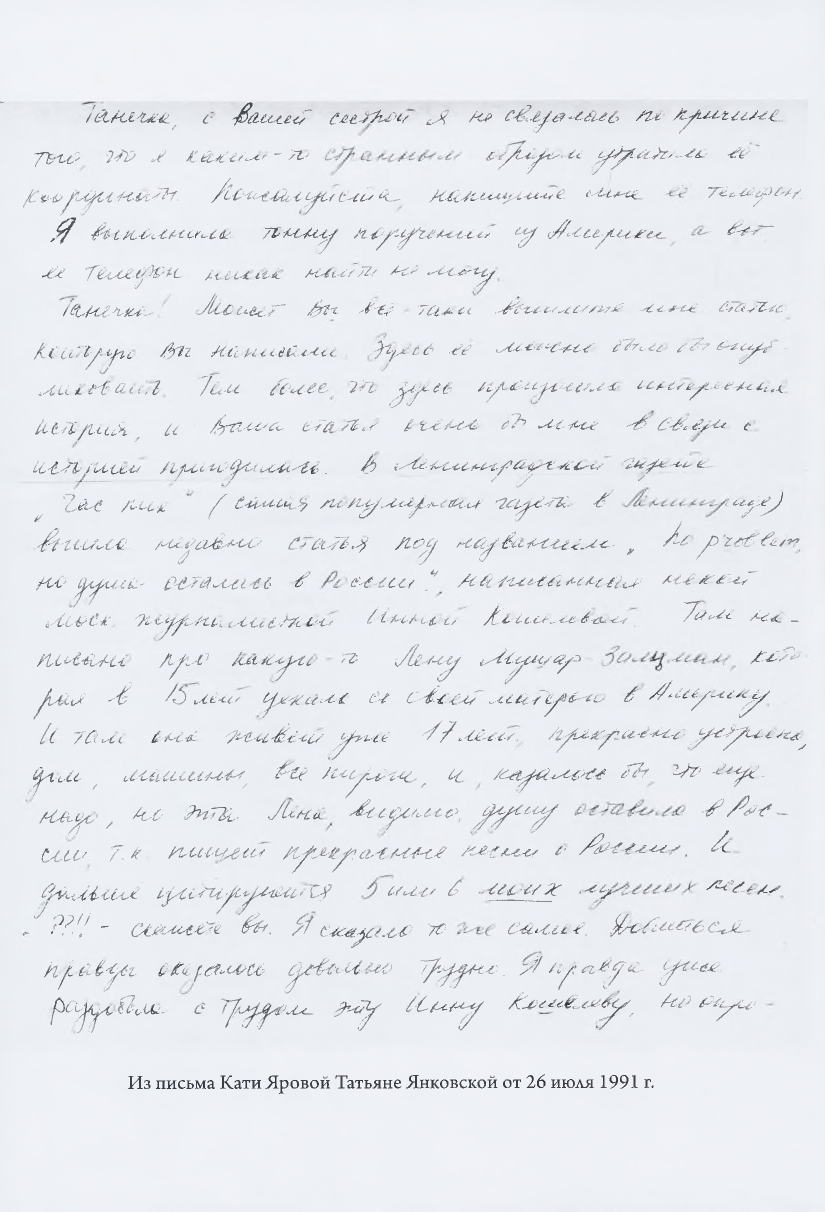 Танечка, с Вашей сестрой я не связалась по причине
того, что я каким-то странным образом утратила её
координаты. Пожалуйста, напишите мне её телефон.
Я выполнила тонну поручений из Америки, а вот
ее телефон никак найти не могу.
Танечка! Может Вы все-таки вышлите мне статью,
которую Вы написали. Здесь её можно было бы опуб-
ликовать. Тем более, что здесь произошла интересная
история, и Ваша статья очень бы мне в связи с
историей пригодилась. В Ленинградской газете
„Час пик" (самая популярная газета в Ленинграде)
вышла недавно статья под названием „
но душа осталась в России", написанная некой
моск. журналисткой Инной Кошелевой. Там на-
писано про какую-то Лену Зальцман, кото-
рая в 15 лет уехала со своей матерью в Америку.
И там она живёт уже 17 лет, прекрасно устроена,
дом, машины, все пироги, и, казалось бы, что еще
надо, но эта Лена, видимо, душу оставила в Рос-
сии, т.к. пишет прекрасные песни о России. И
дальше цитируются 5 или 6 моих лучших песен.
- ??!! - скажете вы. Я сказала то же самое. Добиться
правды оказалось довольно трудно. Я правда уже
раздобыла с трудом эту Инну Кошелеву, но опро-
Из письма Кати Яровой Татьяне Янковской от 26 июля 1991 г.